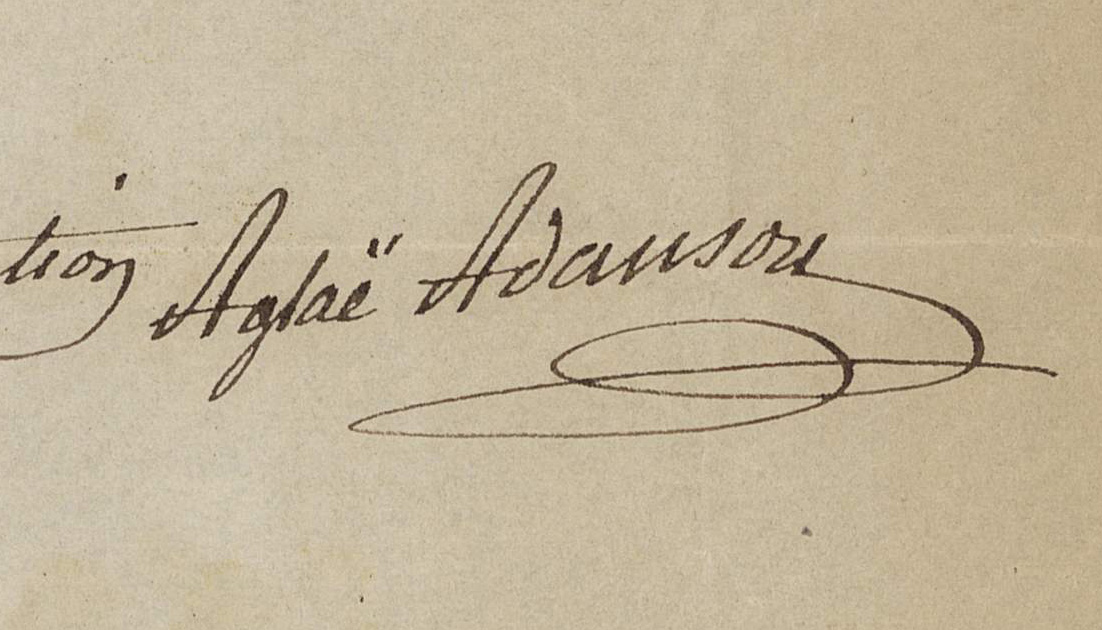 tion Aglaë Adanson